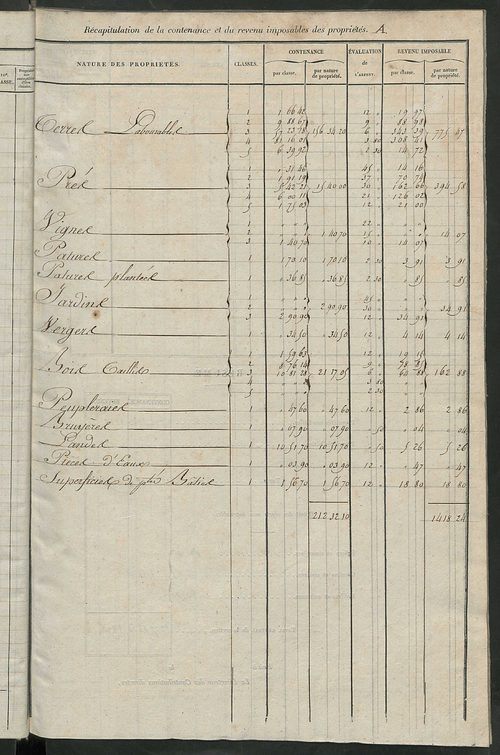 Récapitulation de la contenance et du revenu imposables des propriétés. A.
NATURE DES PROPRIÉTÉS. CLASSES. CONTENANCE ÉVALUATION de L'ARPENT. REVENU IMPOSABLE
par classe. par nature de propriété. par classe. par nature de propriété.
Terres Labourables
1 1 66 42 12 19 97
2 9 88 67 9 88 98
3 57 23 78 156 34 20 6 343 39 775 47
4 81 16 01 3 80 308 41
5 6 39 92 2 30 14 72
Prés
1 31 46 45 14 16
2 1 91 19 37 70 74
3 5 42 21 15 40 00 30 162 66 394 58
4 6 00 11 21 126 02
5 1 75 03 12 21 00
Vignes
1 " " 22 "
2 " " 1 40 70 15 " 14 07
3 1 40 70 10 14 07
Patures 1 1 70 10 1 70 10 2 30 3 91 3 91
Patures plantées " 36 85 " 36 85 2 30 " 85 " 85
Jardins
1 " " 45 "
2 " " 2 90 90 30 " 34 91
3 2 90 90 12 34 91
Vergers 1 " 34 50 " 34 50 12 4 14 4 14
Bois Taillis
1 1 59 63 12 19 15
2 8 76 14 9 78 85
3 10 81 28 21 17 05 6 64 88 162 88
4 " " 3 80
5 " " 2 30
Peupleraies 1 " 47 60 " 47 60 12 2 86 2 86
Bruyères 1 " 07 90 " 07 90 " 50 " 04 " 04
Landes 1 10 51 70 10 51 70 " 50 5 26 5 26
Pièces d'Eaux 1 " 03 90 " 03 90 12 " 47 " 47
Superficies de ptés Bâties 1 1 56 70 1 56 70 12 18 80 18 80
212 32 10 1418 24